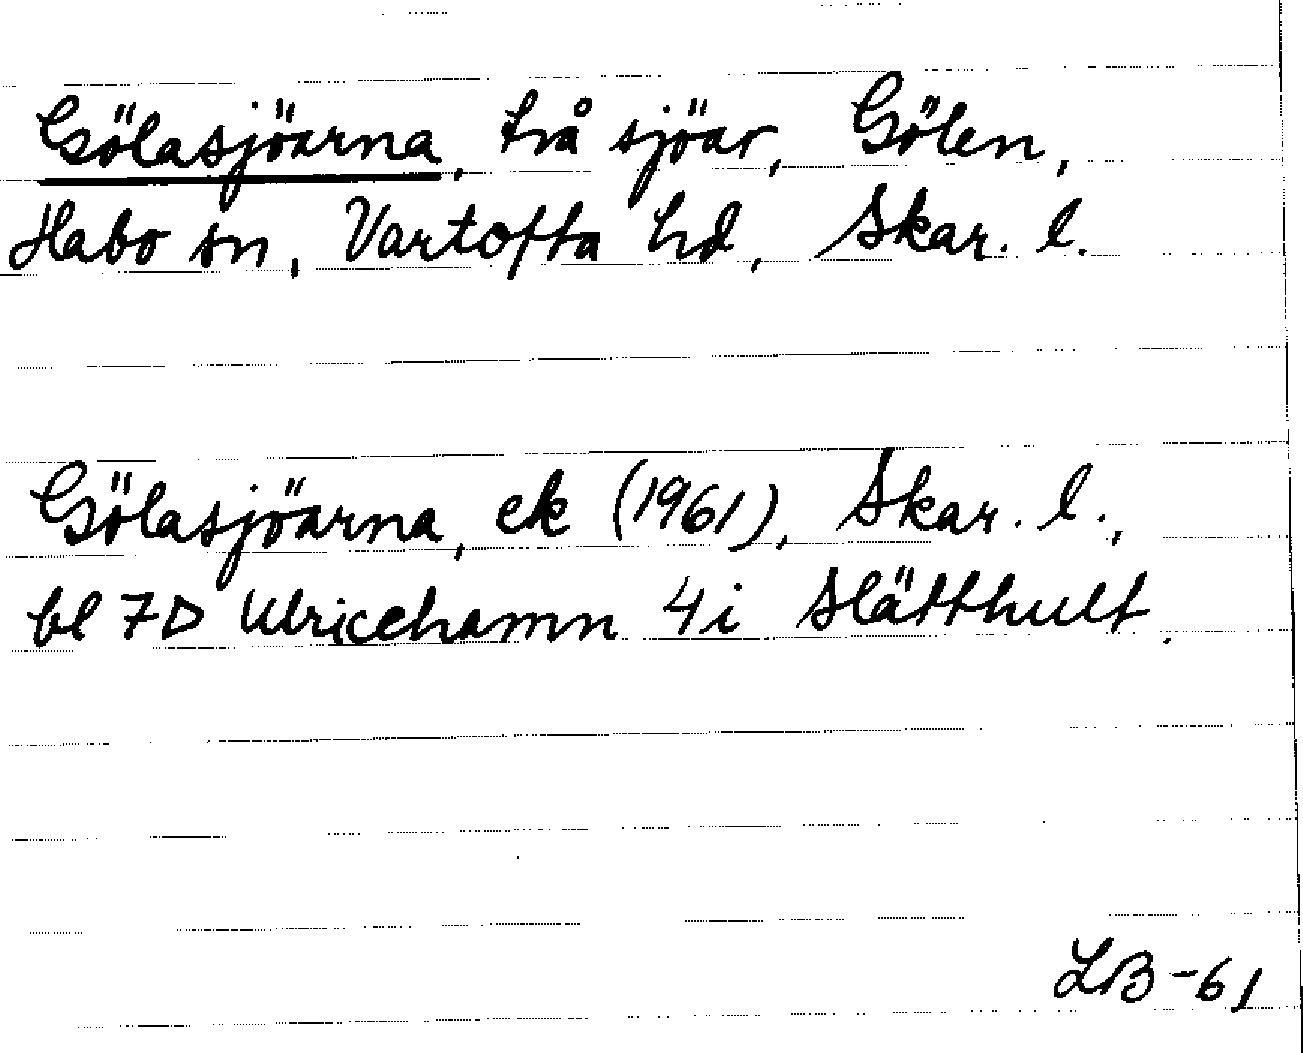 Gölasjöarna, två sjöar, Gölen,
Habo sn, Vartofta hd, Skar. l.
Gölasjöarna, ek (1961), Skar. l.,
bl 7D Ulricehamn 4i Slätthult.
LB-61